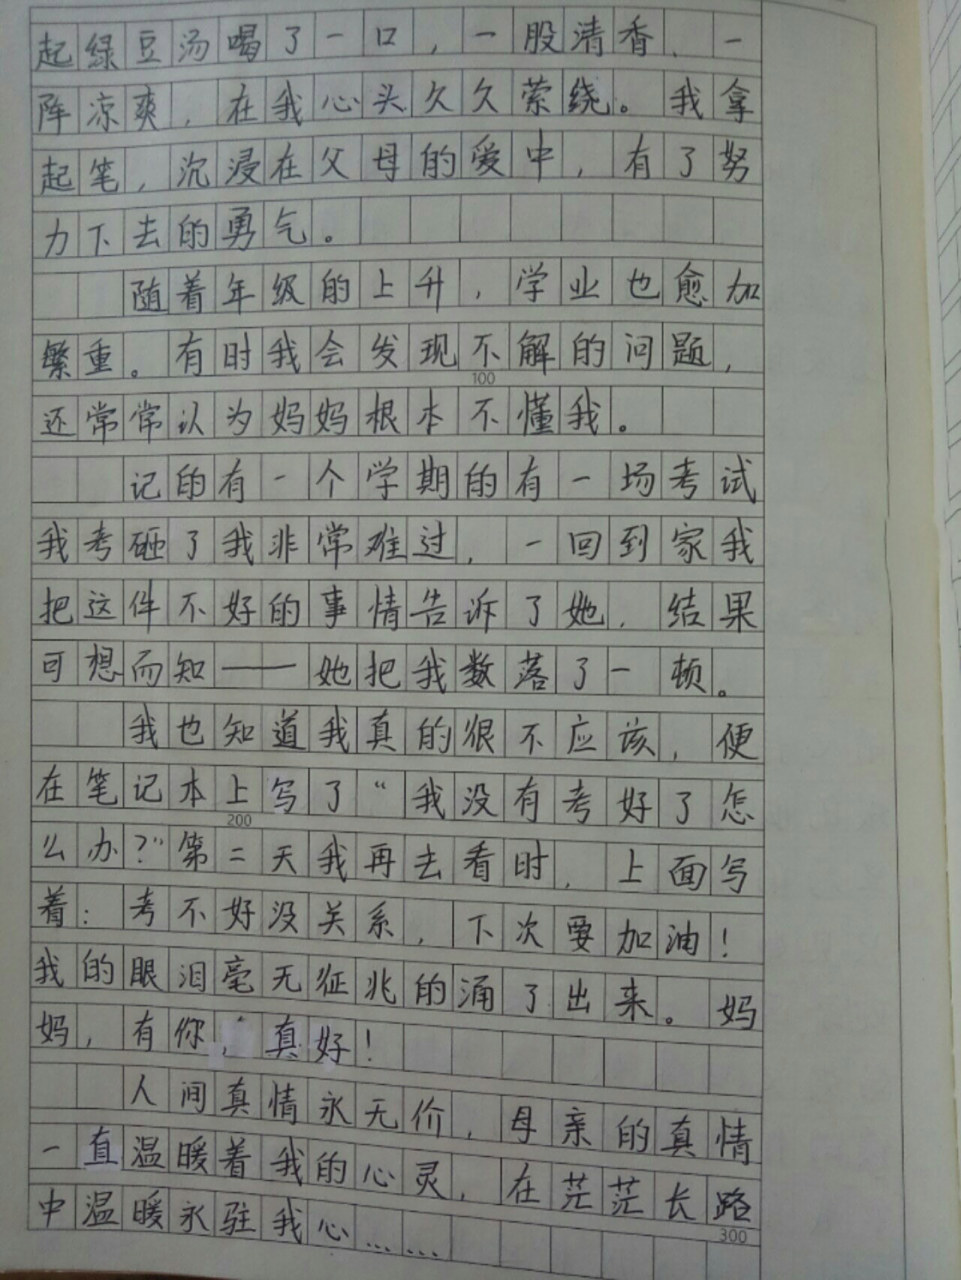 起绿豆汤喝了一口，一股清香、一
阵凉爽，在我心头久久萦绕。我拿
起笔，沉浸在父母的爱中，有了努
力下去的勇气。
随着年级的上升，学业也愈加
繁重。有时我会发现不解的问题，
100
还常常认为妈妈根本不懂我。
记的有一个学期的有一场考试
我考砸了我非常难过，一回到家我
把这件不好的事情告诉了她，结果
可想而知——她把我数落了一顿。
我也知道我真的很不应该，便
在笔记本上写了“我没有考好了怎
200
么办?”第二天我再去看时，上面写
着：考不好没关系，下次要加油！
我的眼泪毫无征兆的涌了出来。妈
妈，有你，真好！
人间真情永无价，母亲的真情
一直温暖着我的心灵，在茫茫长路
中温暖永驻我心……
300